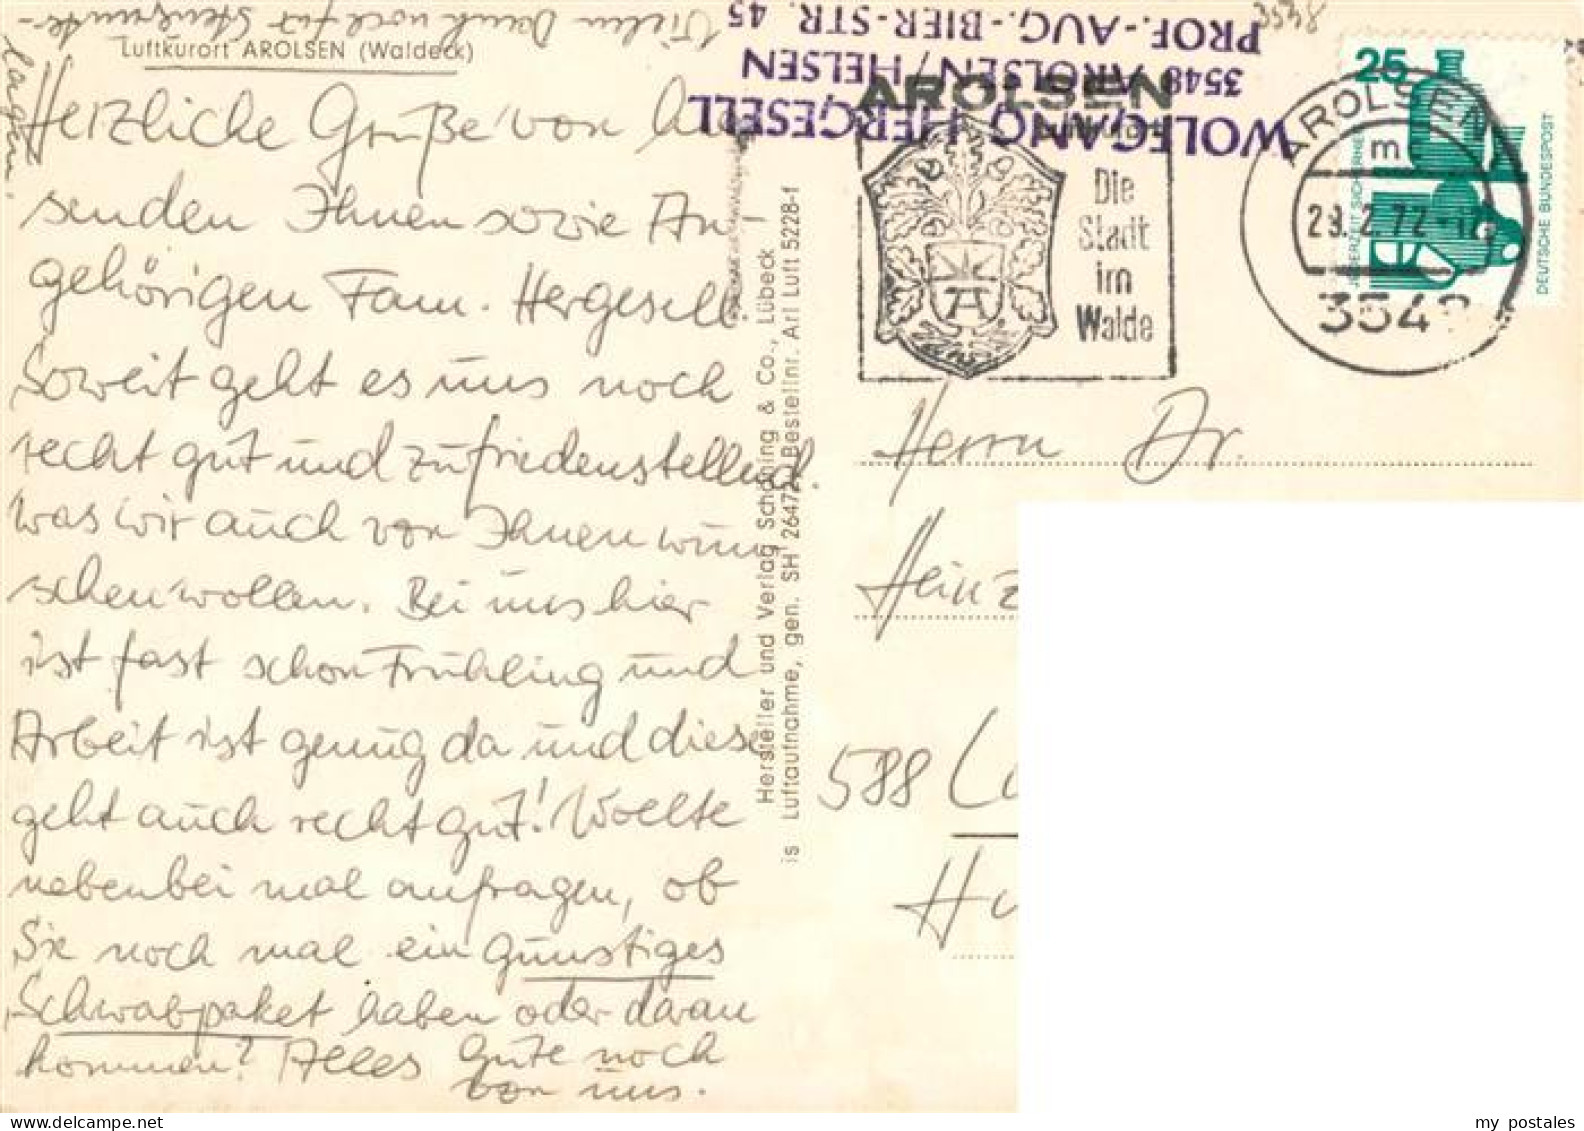 Vielen Dank noch für
lagen,
Luftkurort AROLSEN (Waldeck)
Herzliche Grüße von hier
senden Ihnen sowie An-
gehörigen Fam. Hergesell
Soweit geht es uns noch
recht gut und zufriedenstellend.
was wir auch von Ihnen wün
schen wollen. Bei uns hier
ist fast schon Frühling und
Arbeit ist genug da und diese
geht auch recht gut! Wollte
nebenbei mal anfragen, ob
Sie noch mal ein günstiges
Schwabpaket haben oder daran
kommen? Alles Gute noch
von uns.
Hersteller und Verlag Schöning & Co., Lübeck
is Luftaufnahme, gen. SH 26472 Bestellnr. Arl Luft 5228-f
WOLFGANG HERGESELL
3548 AROLSEN/HELSEN
PROF.-AUG.-BIER-STR. 45
3548
AROLSEN
Die
Stadt
im
Walde
AROLSEN
m
29.2.72
3548
25
JEDERZEIT SICHERHEIT
DEUTSCHE BUNDESPOST
Herrn Dr.
Heinz
588
Hu
my postales